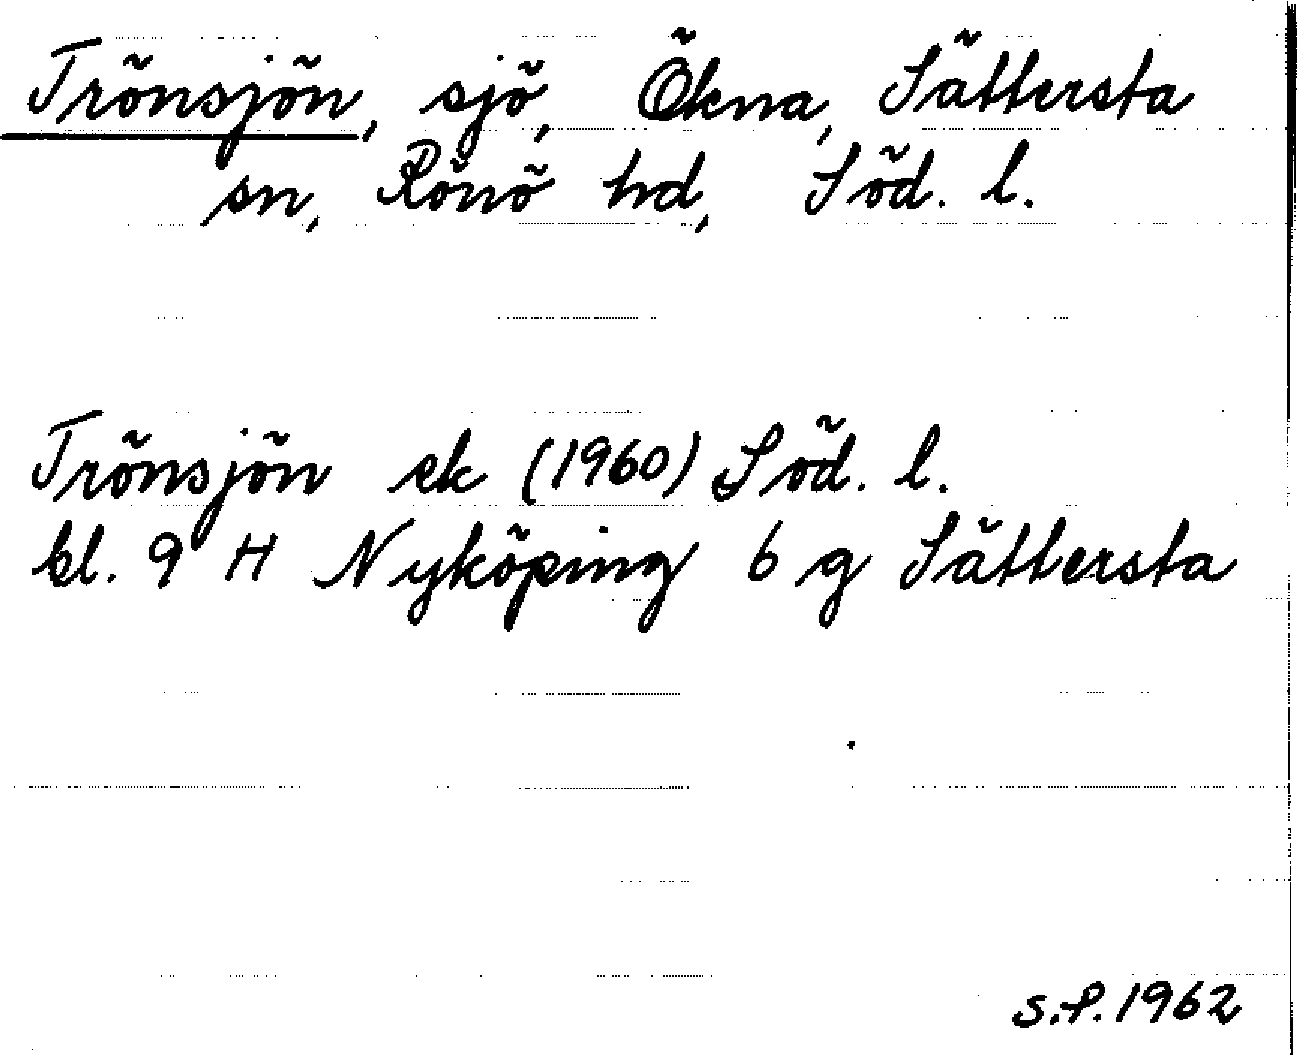 Trönsjön, sjö, Ökna, Sättersta
sn, Rönö hd, Söd. l.
Trönsjön ek (1960) Söd. l.
bl. 9 H Nyköping 6 g Sättersta
S.P. 1962